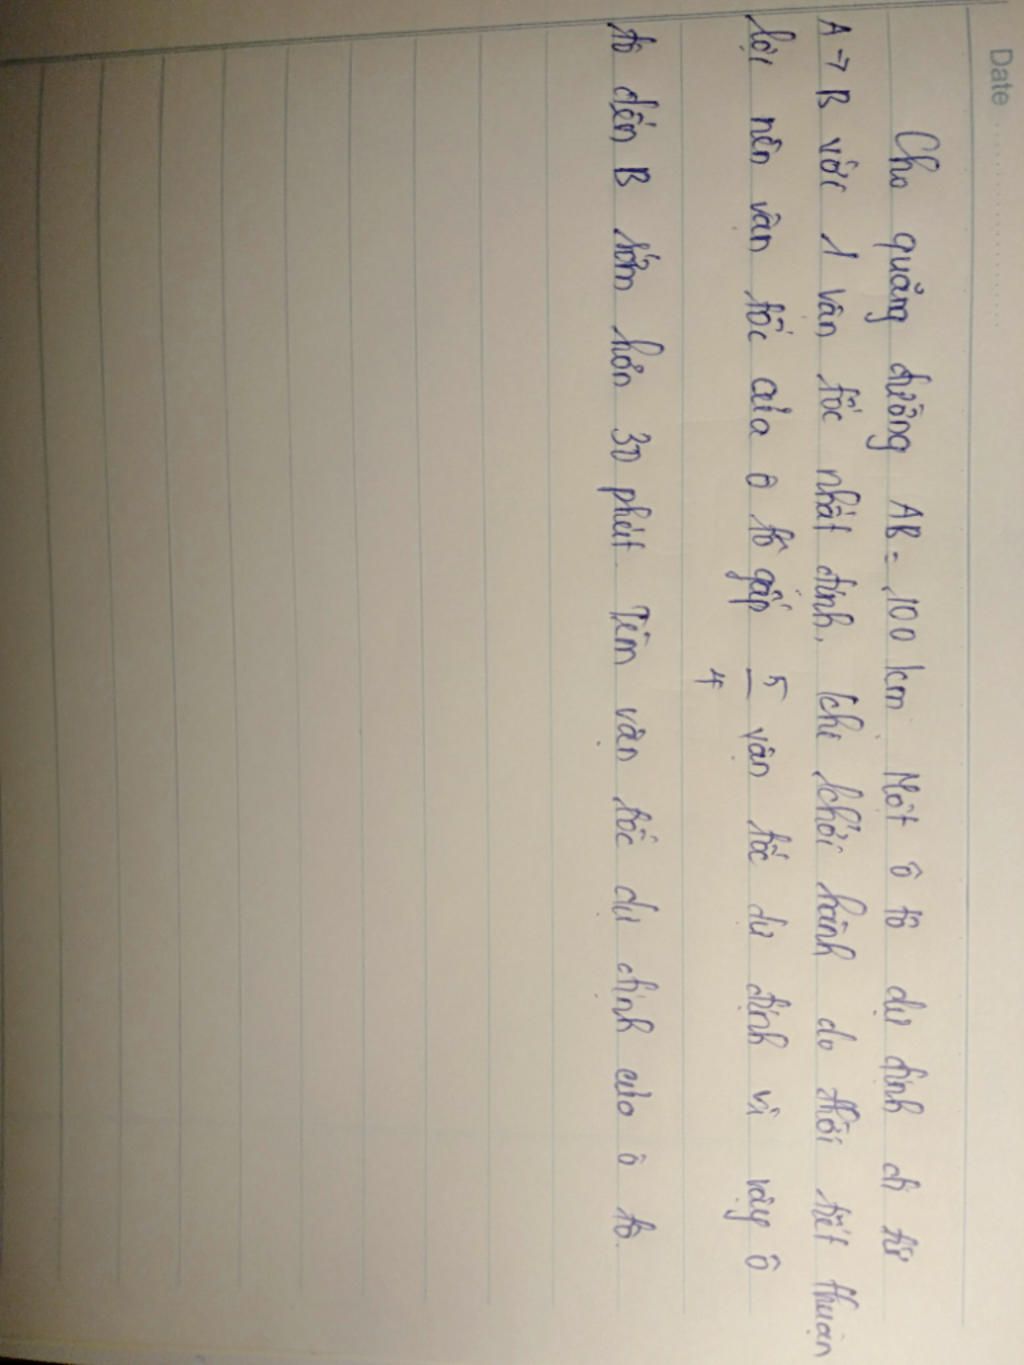 Date
Cho quãng đường AB = 100 km. Một ô tô dự định đi từ
A → B với 1 vận tốc nhất định, khi khởi hành do thời tiết thuận
lợi nên vận tốc của ô tô gấp 5/4 vận tốc dự định vì vậy ô
tô đến B sớm hơn 30 phút. Tìm vận tốc dự định của ô tô.